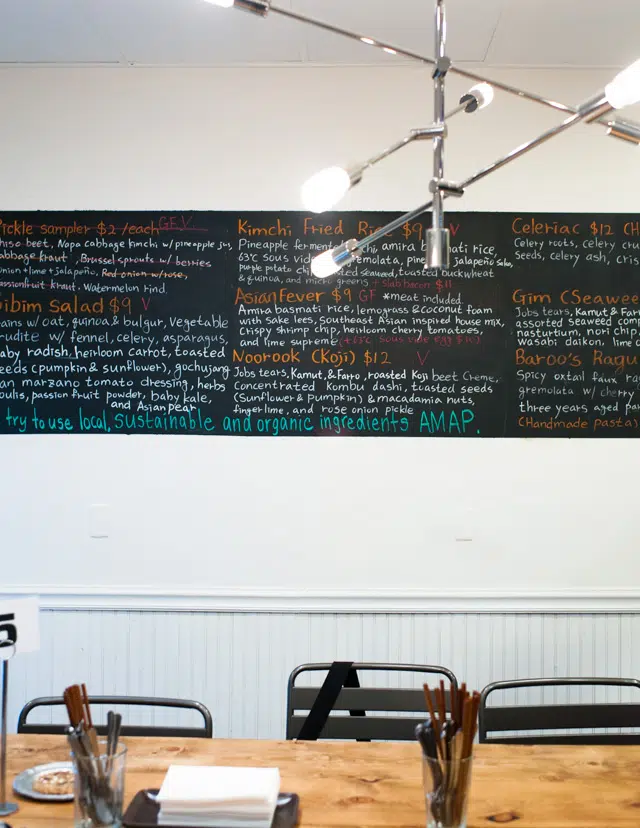 Pickle sampler $2/each GF V
beet, Napa cabbage kimchi w/ pineapple jus,
cabbage kraut, Brussel sprouts w/ berries
onion + lime + jalapeño, Red onion w/ rose,
passionfruit kraut. Watermelon rind.
Bibim Salad $9 V
grains w/ oat, quinoa & bulgur, Vegetable
crudite w/ fennel, celery, asparagus,
baby radish, heirloom carrot, toasted
seeds (pumpkin & sunflower), gochujang
san marzano tomato dressing, herbs
coulis, passion fruit powder, baby kale,
and Asian pear
Kimchi Fried Rice $9 V
Pineapple fermented kimchi, amira basmati rice,
63°C Sous vide gremolata, jalapeño
purple potato chip, toasted seaweed, toasted buckwheat
& quinoa, and micro greens + slab bacon $11
Asian Fever $9 GF *meat included
Amira basmati rice, lemongrass & coconut foam
with sake lees, Southeast Asian inspired house mix,
Crispy shrimp chip, heirloom cherry tomatoes,
and lime supreme. (+63°C Sous vide egg $10)
Noorook (Koji) $12 V
Jobs tears, Kamut, & Farro, roasted Koji beet Creme,
Concentrated Kombu dashi, toasted seeds
(Sunflower & pumpkin) & macadamia nuts,
finger lime, and rose onion pickle
Celeriac $12 (H
Celery roots, celery
Seeds, celery ash,
Gim (Seawee
Jobs tears, Kamut & Farr
assorted seaweed com
nasturtium, nori chip,
wasabi daikon, lime
Baroo's Ragu
Spicy oxtail ragu
gremolata w/ cherry
three years aged
(Handmade pasta)
try to use local, sustainable and organic ingredients AMAP.